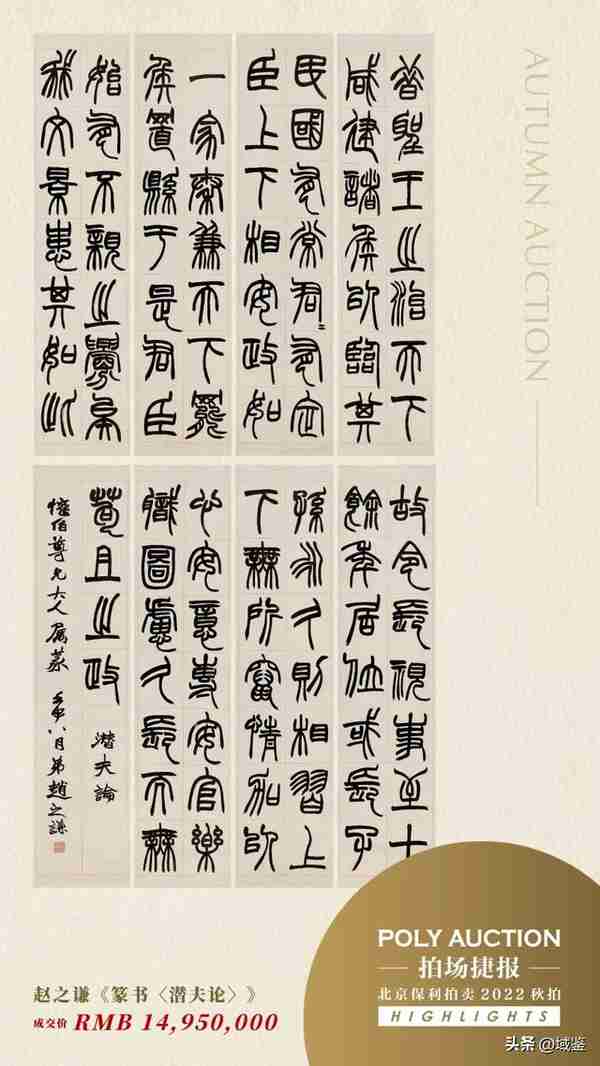 昔聖王之治天下
咸建諸侯以臨其
民國有常君〻有定
臣上下相安政如
一家秦兼天下罷
侯置縣于是君臣
始有不親之釁矣
我文景患其如此
故令長視事至十
餘年居位或長子
孫永久則相習上
下無所竄情加以
心安意專安官樂
職圖慮久長而無
苟且之政
潛夫論
伯尊兄大人屬篆 八月弟趙之謙
AUTUMN AUCTION
POLY AUCTION
拍场捷报
北京保利拍卖 2022 秋拍
HIGHLIGHTS
赵之谦《篆书〈潜夫论〉》
成交价 RMB 14,950,000
头条 @域鉴